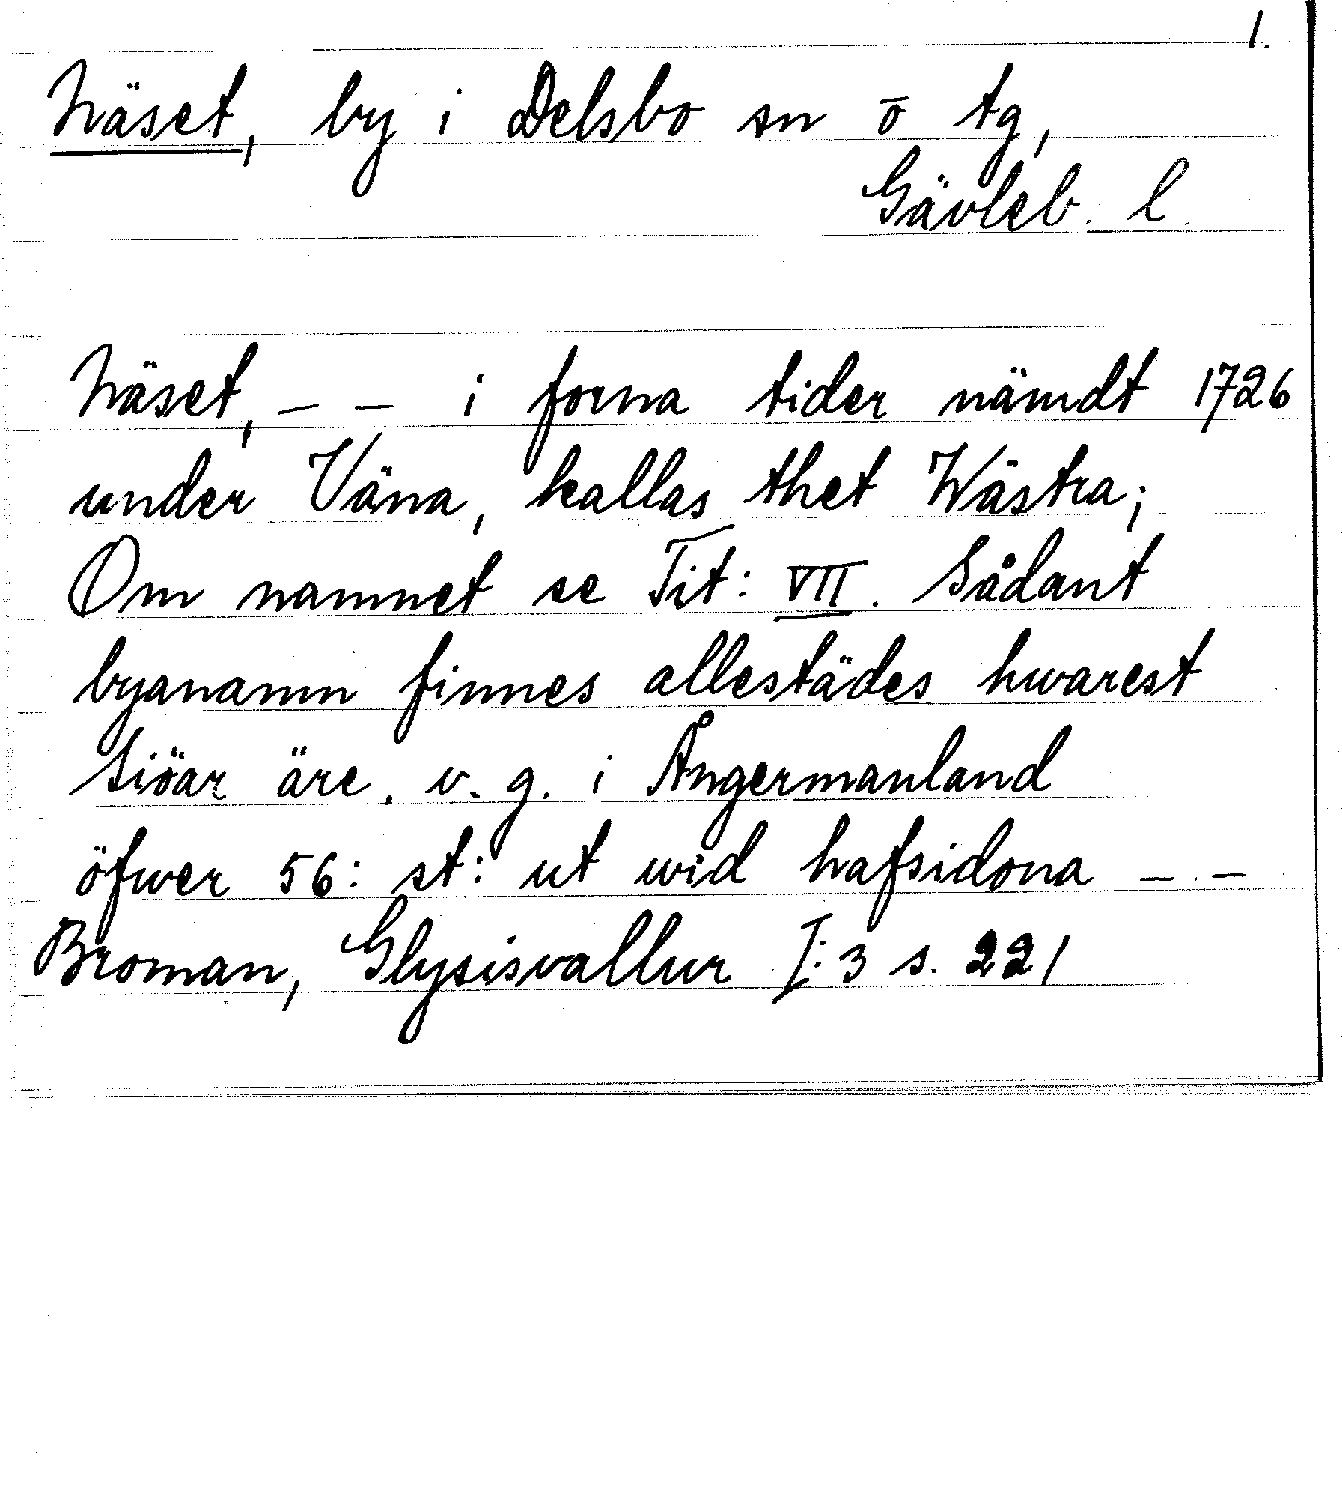 1.
Näset, by i Delsbo sn o tg,
Gävleb. l.
Näset, – – i forna tider nämdt 1726
under Väna, kallas thet Wästra;
Om namnet se Tit: VII. Sådant
byanamn finnes allestädes hwarest
Siöar äre. v. g. i Ångermanland
öfwer 56: st: ut wid hafsidona – –
Broman, Glysisvallur I:3 s. 221